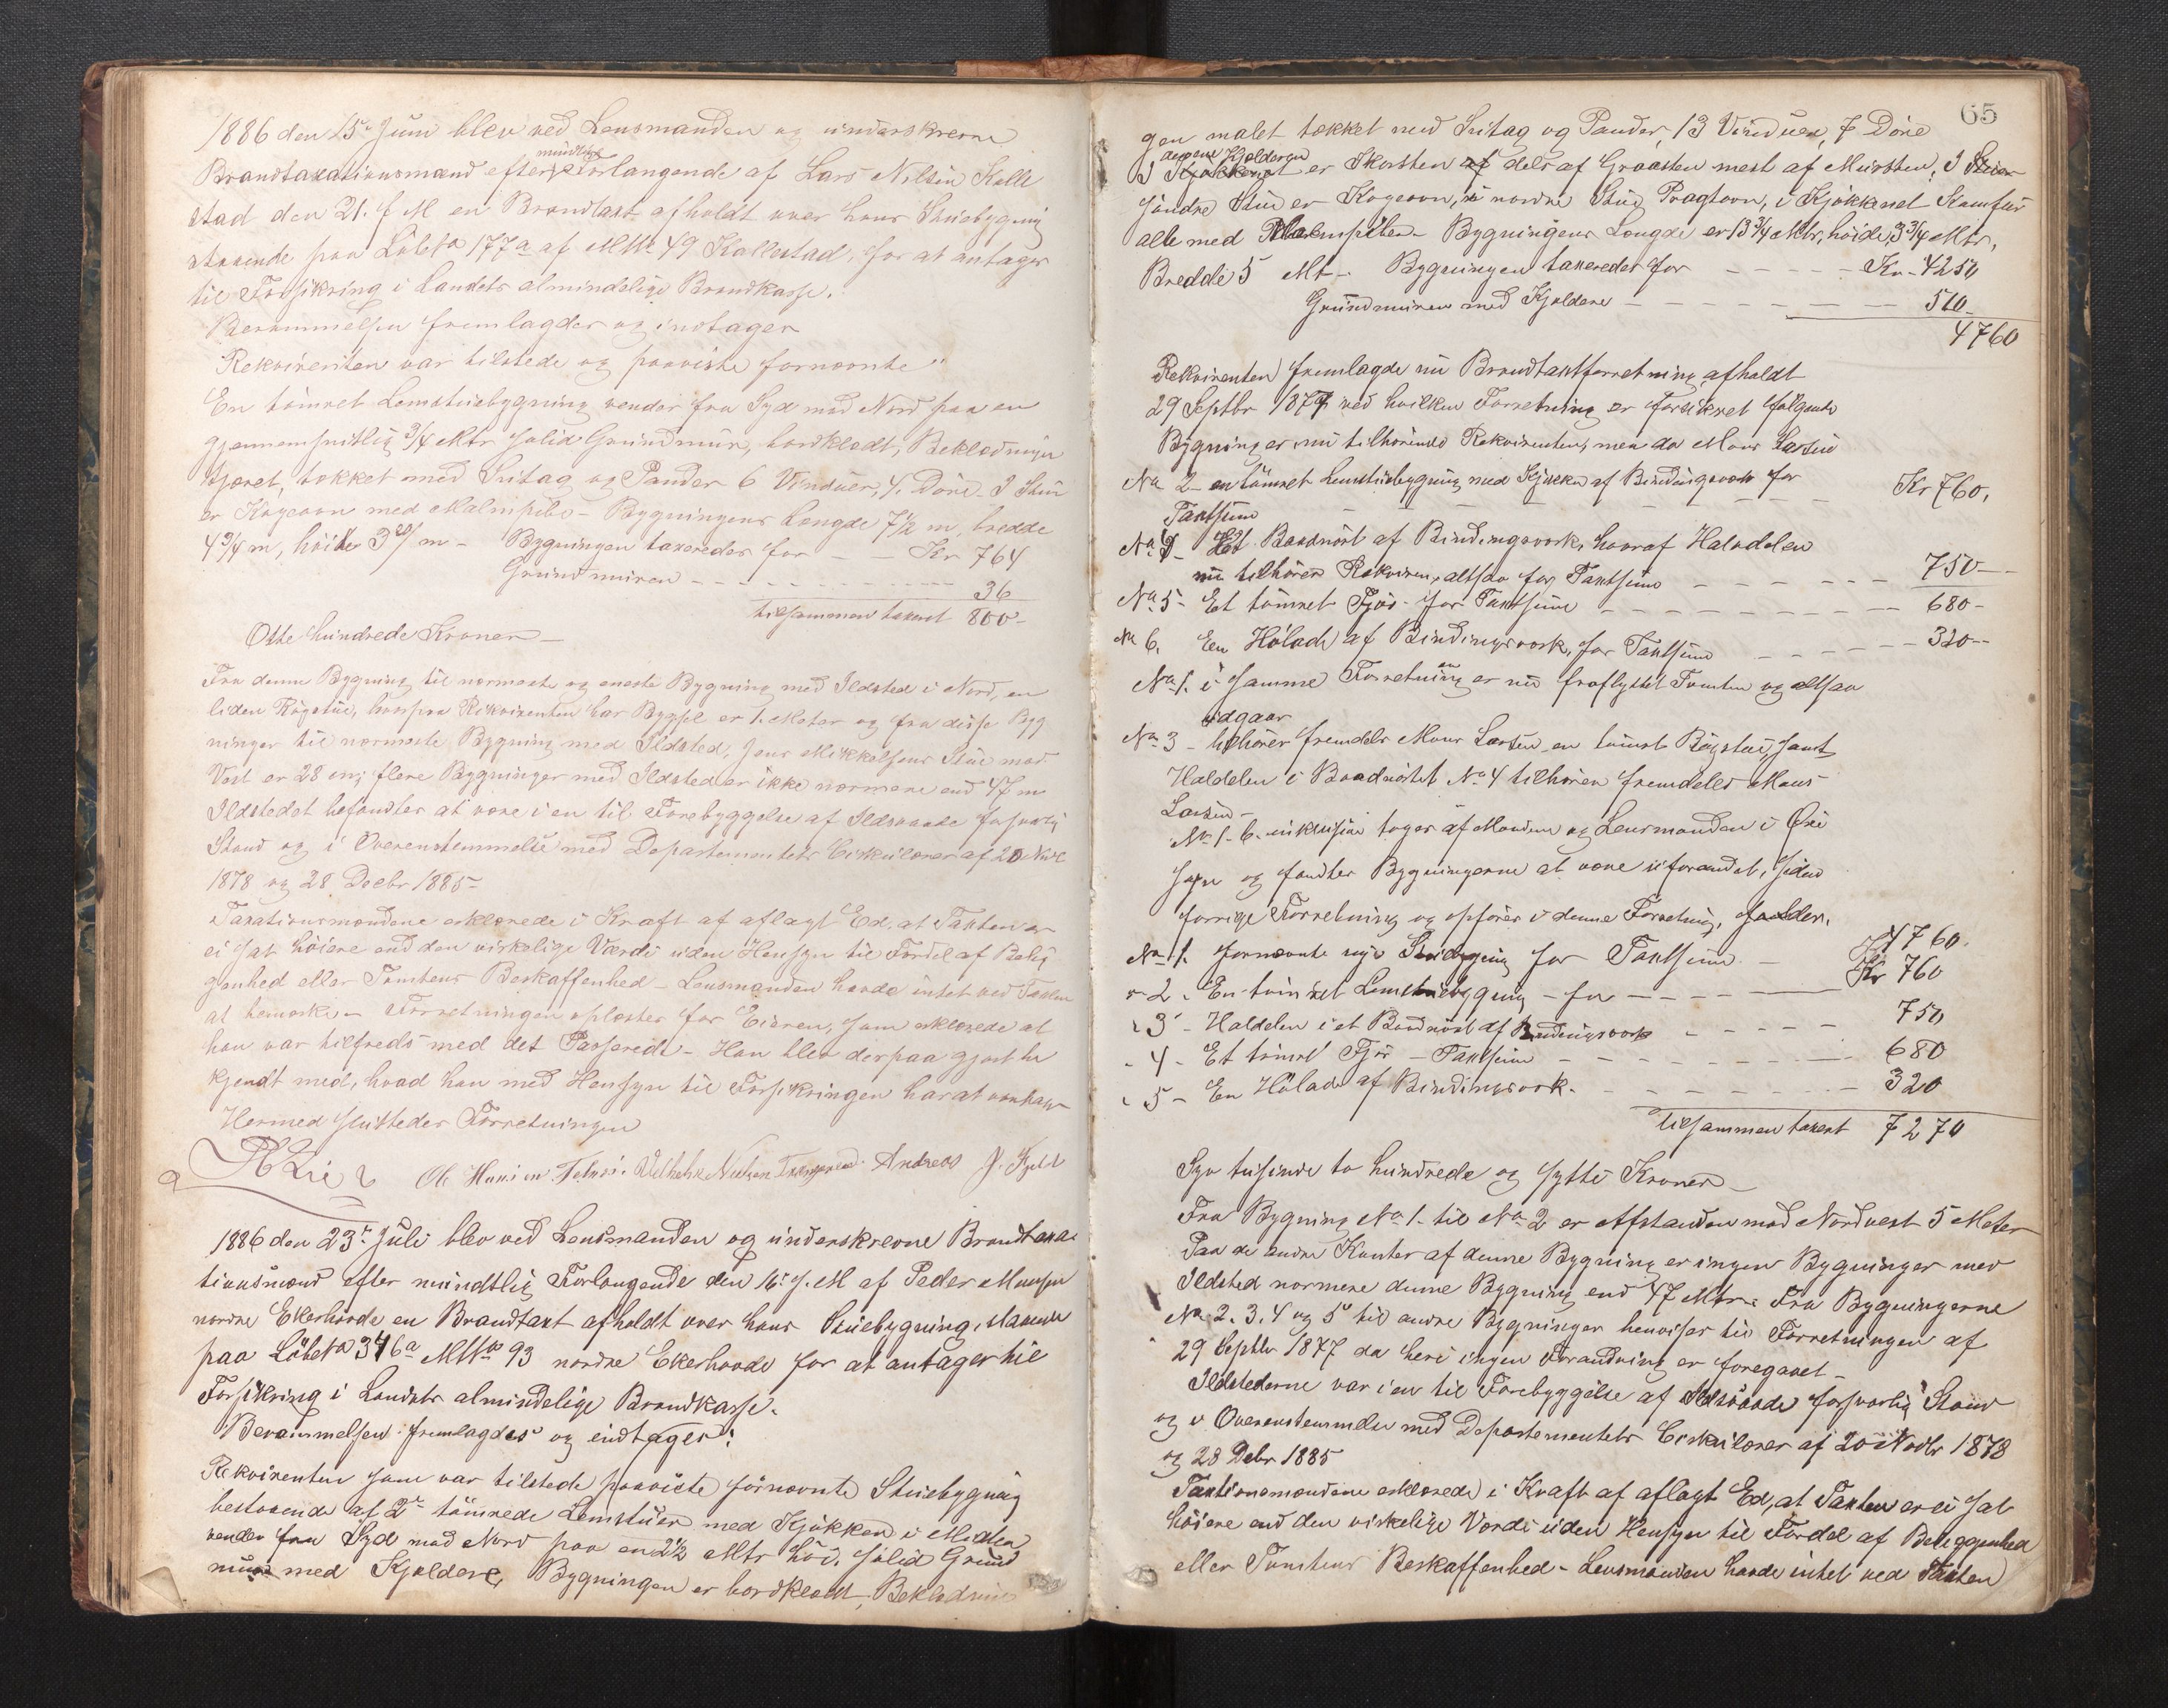 1886 den 15de Juni blev ved Lensmanden og underskrevne
Brandtaxationsmænd efter mundtlig Forlangende af Lars Nilsen Kalle
stad den 21. f M en Brandtaxt afholdt over hans Stuebygning
staaende paa Løbeno 177a af MNo 49 Kallestad, for at antages
til Forsikring i Landets almindelige Brandkasse.
Berammelsen fremlagdes og indtages
Rekvirenten var tilstede og paaviste fornævnte
En tømret Lemstuebygning vender fra Syd mod Nord paa en
gjennemsnitlig 3/4 Mtr solid Grundmur, bordklædt, Beklædningen
tjæret, tækket med Sutag og Pander 6 Vinduer, 4 Døre I Stuen
er Kogeovn med Malmpibe - Bygningens Længde 7 1/2 m, bredde
4 3/4 m, høide 3 20/ m - Bygningen taxeredes for - - Kr 764
Grundmuren - - - 36
tilsammen taxeret 800 -
Otte hundrede Kroner -
Fra denne Bygning til nærmeste og eneste Bygning med Ildsted i Nord, en
liden Røgstue, hvorpaa Rekvirenten har Bygsel er 1 Meter og fra disse Byg
ninger til nærmeste Bygning med Ildsted, Jens Mikkelsens Stue mod
Vest er 28 m; flere Bygninger med Ildsted er ikke nærmere end 47 m
Ildstedet befandtes at være i en til Forebyggelse af Ildsvaade forsvarlig
Stand og i Overensstemmelse med Departementets Cirkulærer af 20 Novbr
1878 og 28 Decbr 1885 -
Taxationsmændene erklærede i Kraft af aflagt Ed, at Taxten er
ei sat høiere end den virkelige Værdi uden Hensyn til Fordel af Belig
genhed eller Tomtens Beskaffenhed - Lensmanden havde intet ved Taxten
at bemærke - Forretningen oplæstes for Eieren, som erklærede at
han var tilfreds med det Passerede - Han blev derpaa gjort be
kjendt med, hvad han med Hensyn til Forsikringen har at iagttage
Hermed sluttedes Forretningen
Ol Hansen Vilhelm Nielsen Andreas J. Fjeld
1886 den 23de Juli blev ved Lensmanden og underskrevne Brandtaxa
tionsmænd efter mundtlig Forlangende den 16de s. M af Peder Monsen
nordre Ekerhovde en Brandtaxt afholdt over hans Stuebygning, staaende
paa Løbeno 346a MNo 93 nordre Ekerhovde for at antages til
Forsikring i Landets almindelige Brandkasse.
Berammelsen fremlagdes og indtages:
Rekvirenten som var tilstede paaviste fornævnte Stuebygning
bestaaende af 2de tømrede Lemstuer med Kjøkken i Midten
vender fra Syd mod Nord paa en 2 1/2 Mtr høi, solid Grund
mur med Kjeldere, Bygningen er bordklædt, Beklædnin
65
gen malet tækket med Sutag og Pander, 13 Vinduer, 7 Døre
Kjelderen
I er Skorsten dels af Graasten mest af Mursten, I
søndre Stue er Kogeovn, i nordre Stue Pragtovn, i Kjøkkenet Komfur
alle med Malmpiber - Bygningens Længde er 13 3/4 Mtr, høide, 3 3/4 Mtr,
Bredde 5 Mt - Bygningen taxeredes for - - - Kr - 4250
Grundmuren med Kjeldere - - - 510 -
4760
Rekvirenten fremlagde nu Brandtaxtforretning afholdt
29 Septbr 1877 ved hvilken Forretning er forsikret følgende
Bygninger nu tilhørende Rekvirenten, men da Mons Larsen
No 2 - en tømret Lemstuebygning med Kjøkken af Bindingsverk for
Taxtsum - - - Kr 760,
No 4 - Et Baadnøst af Bindingsverk, hvoraf Halvdelen
nu tilhører Rekviren, altsaa for Taxtsum - - - 750 -
No 5 - Et tømret Fjøs - for Taxtsum - - - 680 -
No 6. En Hølade af Bindingsverk, for Taxtsum - - - 320 -
No 1. i samme Forretning er nu fraflyttet Tomten og altsaa
udgaar
No 3 - tilhører fremdeles Mons Larsen en tømret Røgstue, samt
Haldelen i Baadnøstet No 4 tilhører fremdeles Mons
Larsen -
No 1 - 6 - inklusive toges af Mændene og Lensmanden i Øie
syn og fandtes Bygningerne at være uforandret, siden
forrige Forretning og opføres i denne Forretning, saaledes.
No 1. fornævnte nye Stuebygning for Taxtsum - Kr 4760.
" 2. En tømret Lemstuebygning - for - - - Kr 760
" 3 - Haldelen i et Baadnøst af Bindingsverk - - - 750
" 4 - Et tømret Fjøs - Taxtsum - - - 680
" 5 - En Hølade af Bindingsverk. - - - 320
tilsammen taxeret 7270
Syv tusinde to hundrede og sytti Kroner -
Fra Bygning No 1 - til No 2 er Afstanden mod Nordvest 5 Meter
Paa de andre Kanter af denne Bygning er ingen Bygninger med
Ildsted nærmere denne Bygning end 47 Mtr. Fra Bygningerne
No 2. 3. 4 og 5 til andre Bygninger henvises til Forretningen af
29 Septbr 1877 da heri ingen Forandring er foregaaet -
Ildstederne var i en til Forebyggelse af Ildsvaade forsvarlig Stand
og i Overensstemmelse med Departementets Cirkulærer af 20 Novbr 1878
og 28 Debr 1885
Taxtionsmændene erklærede i Kraft af aflagt Ed, at Taxten er ei sat
høiere end den virkelige Værdi uden Hensyn til Fordel af Beliggenhed
eller Tomtens Beskaffenhed - Lensmanden havde intet ved Taxten